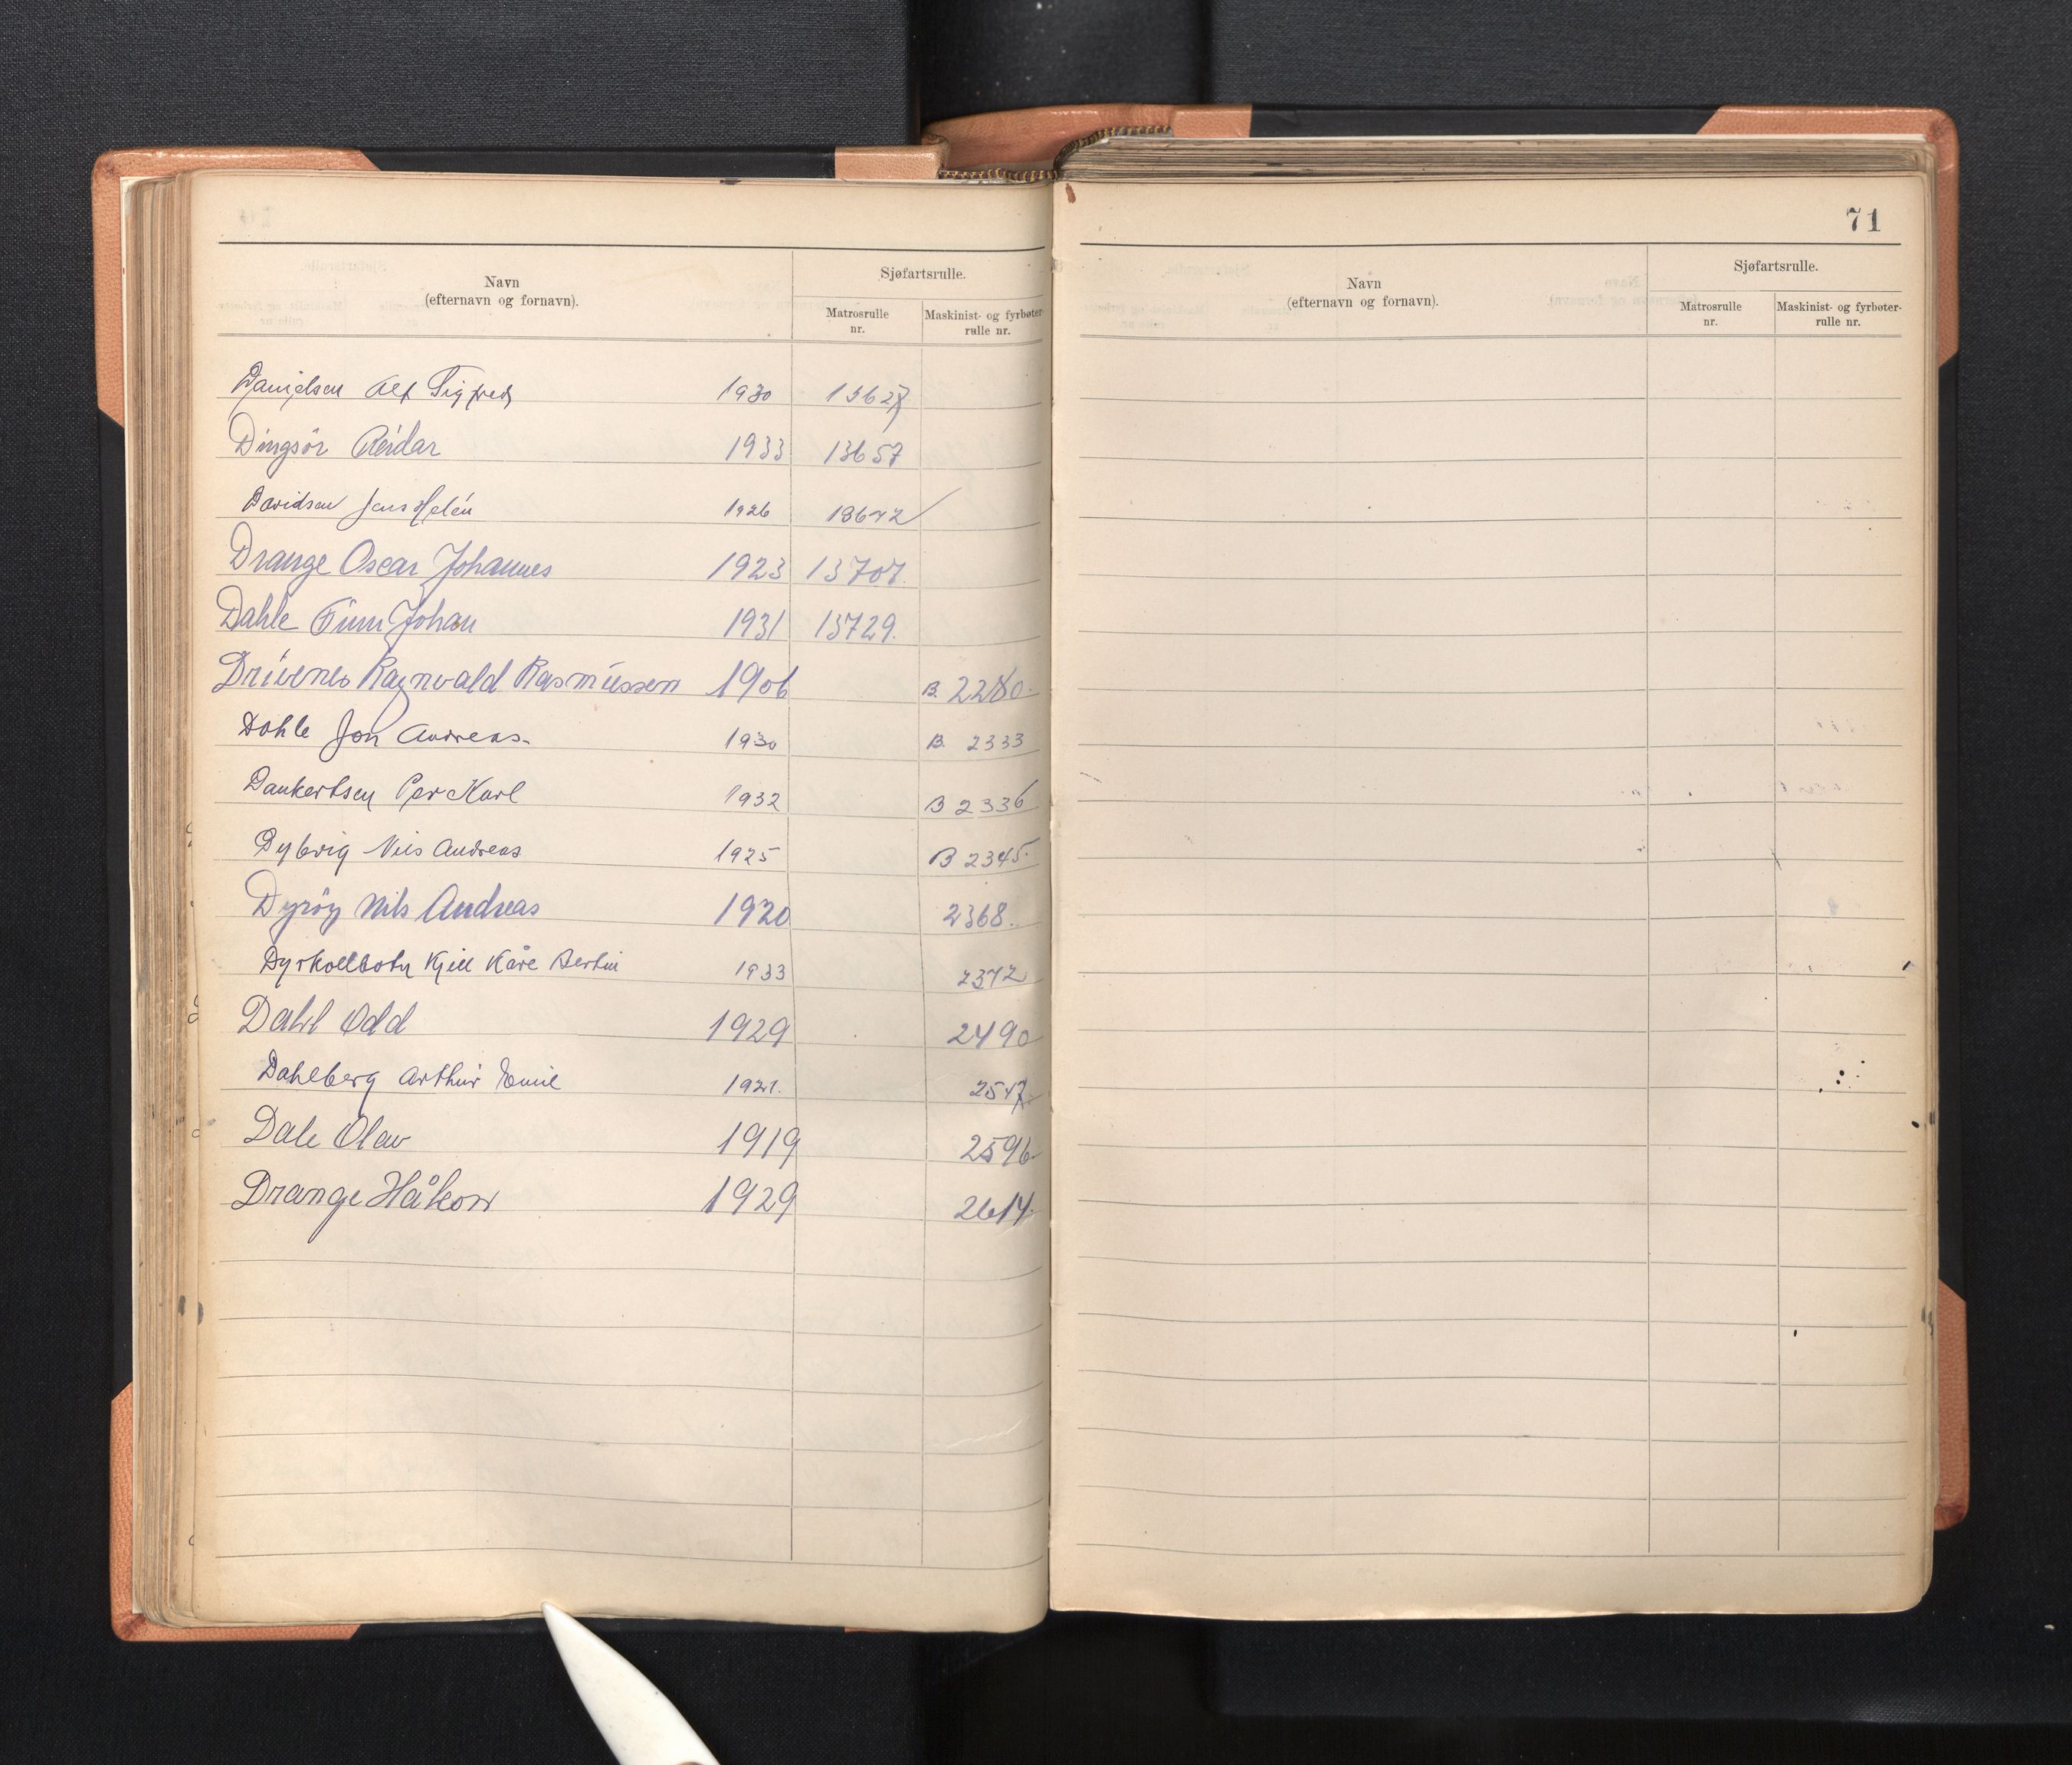 Navn
(efternavn og fornavn).
Sjøfartsrulle.
Matrosrulle
nr.
Maskinist- og fyrbøter-
rulle nr.
Danielsen Alf Sigfred 1930 13627
Dingsör Reidar 1933 13657
Davidsen Jens Helén 1926 13672
Drange Oscar Johannes 1923 13707.
Dahle Finn Johan 1931 13729.
Drivenes Ragnvald Rasmussen 1906 B. 2280.
Dahle Jon Andreas. 1930 B. 2333
Dankertsen Per Karl 1932 B 2336
Dybvig Nils Andreas 1925 B 2345.
Dyröy Nils Andreas 1920 2368.
Dyrkollbotn Kjell Kåre Bertin 1933 2372
Dahl Odd 1929 2490
Dahlberg Arthur Emil 1921. 2547.
Dale Olav 1919 2596
Drange Håkon 1929 2614.
71
Navn
(efternavn og fornavn).
Sjøfartsrulle.
Matrosrulle
nr.
Maskinist- og fyrbøter-
rulle nr.